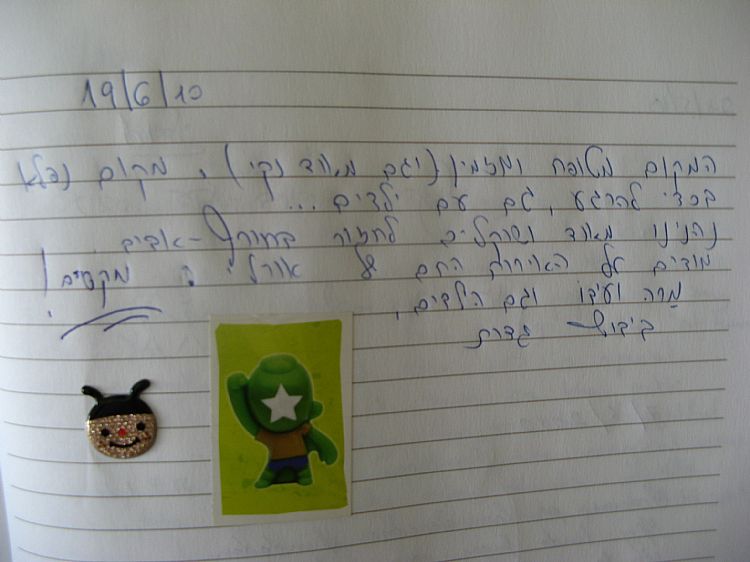 19/6/10
המקום מטופח ומזמין (וגם מאוד נקי). מקום נפלא
בכדי להרגע, גם עם ילדים...
נהנינו מאוד ושוקלים לחזור בחורף-אביב.
מודים על האירוח החם של אורלי מקסים!
מרה ועידו וגם הילדים,
קיבוץ גדות